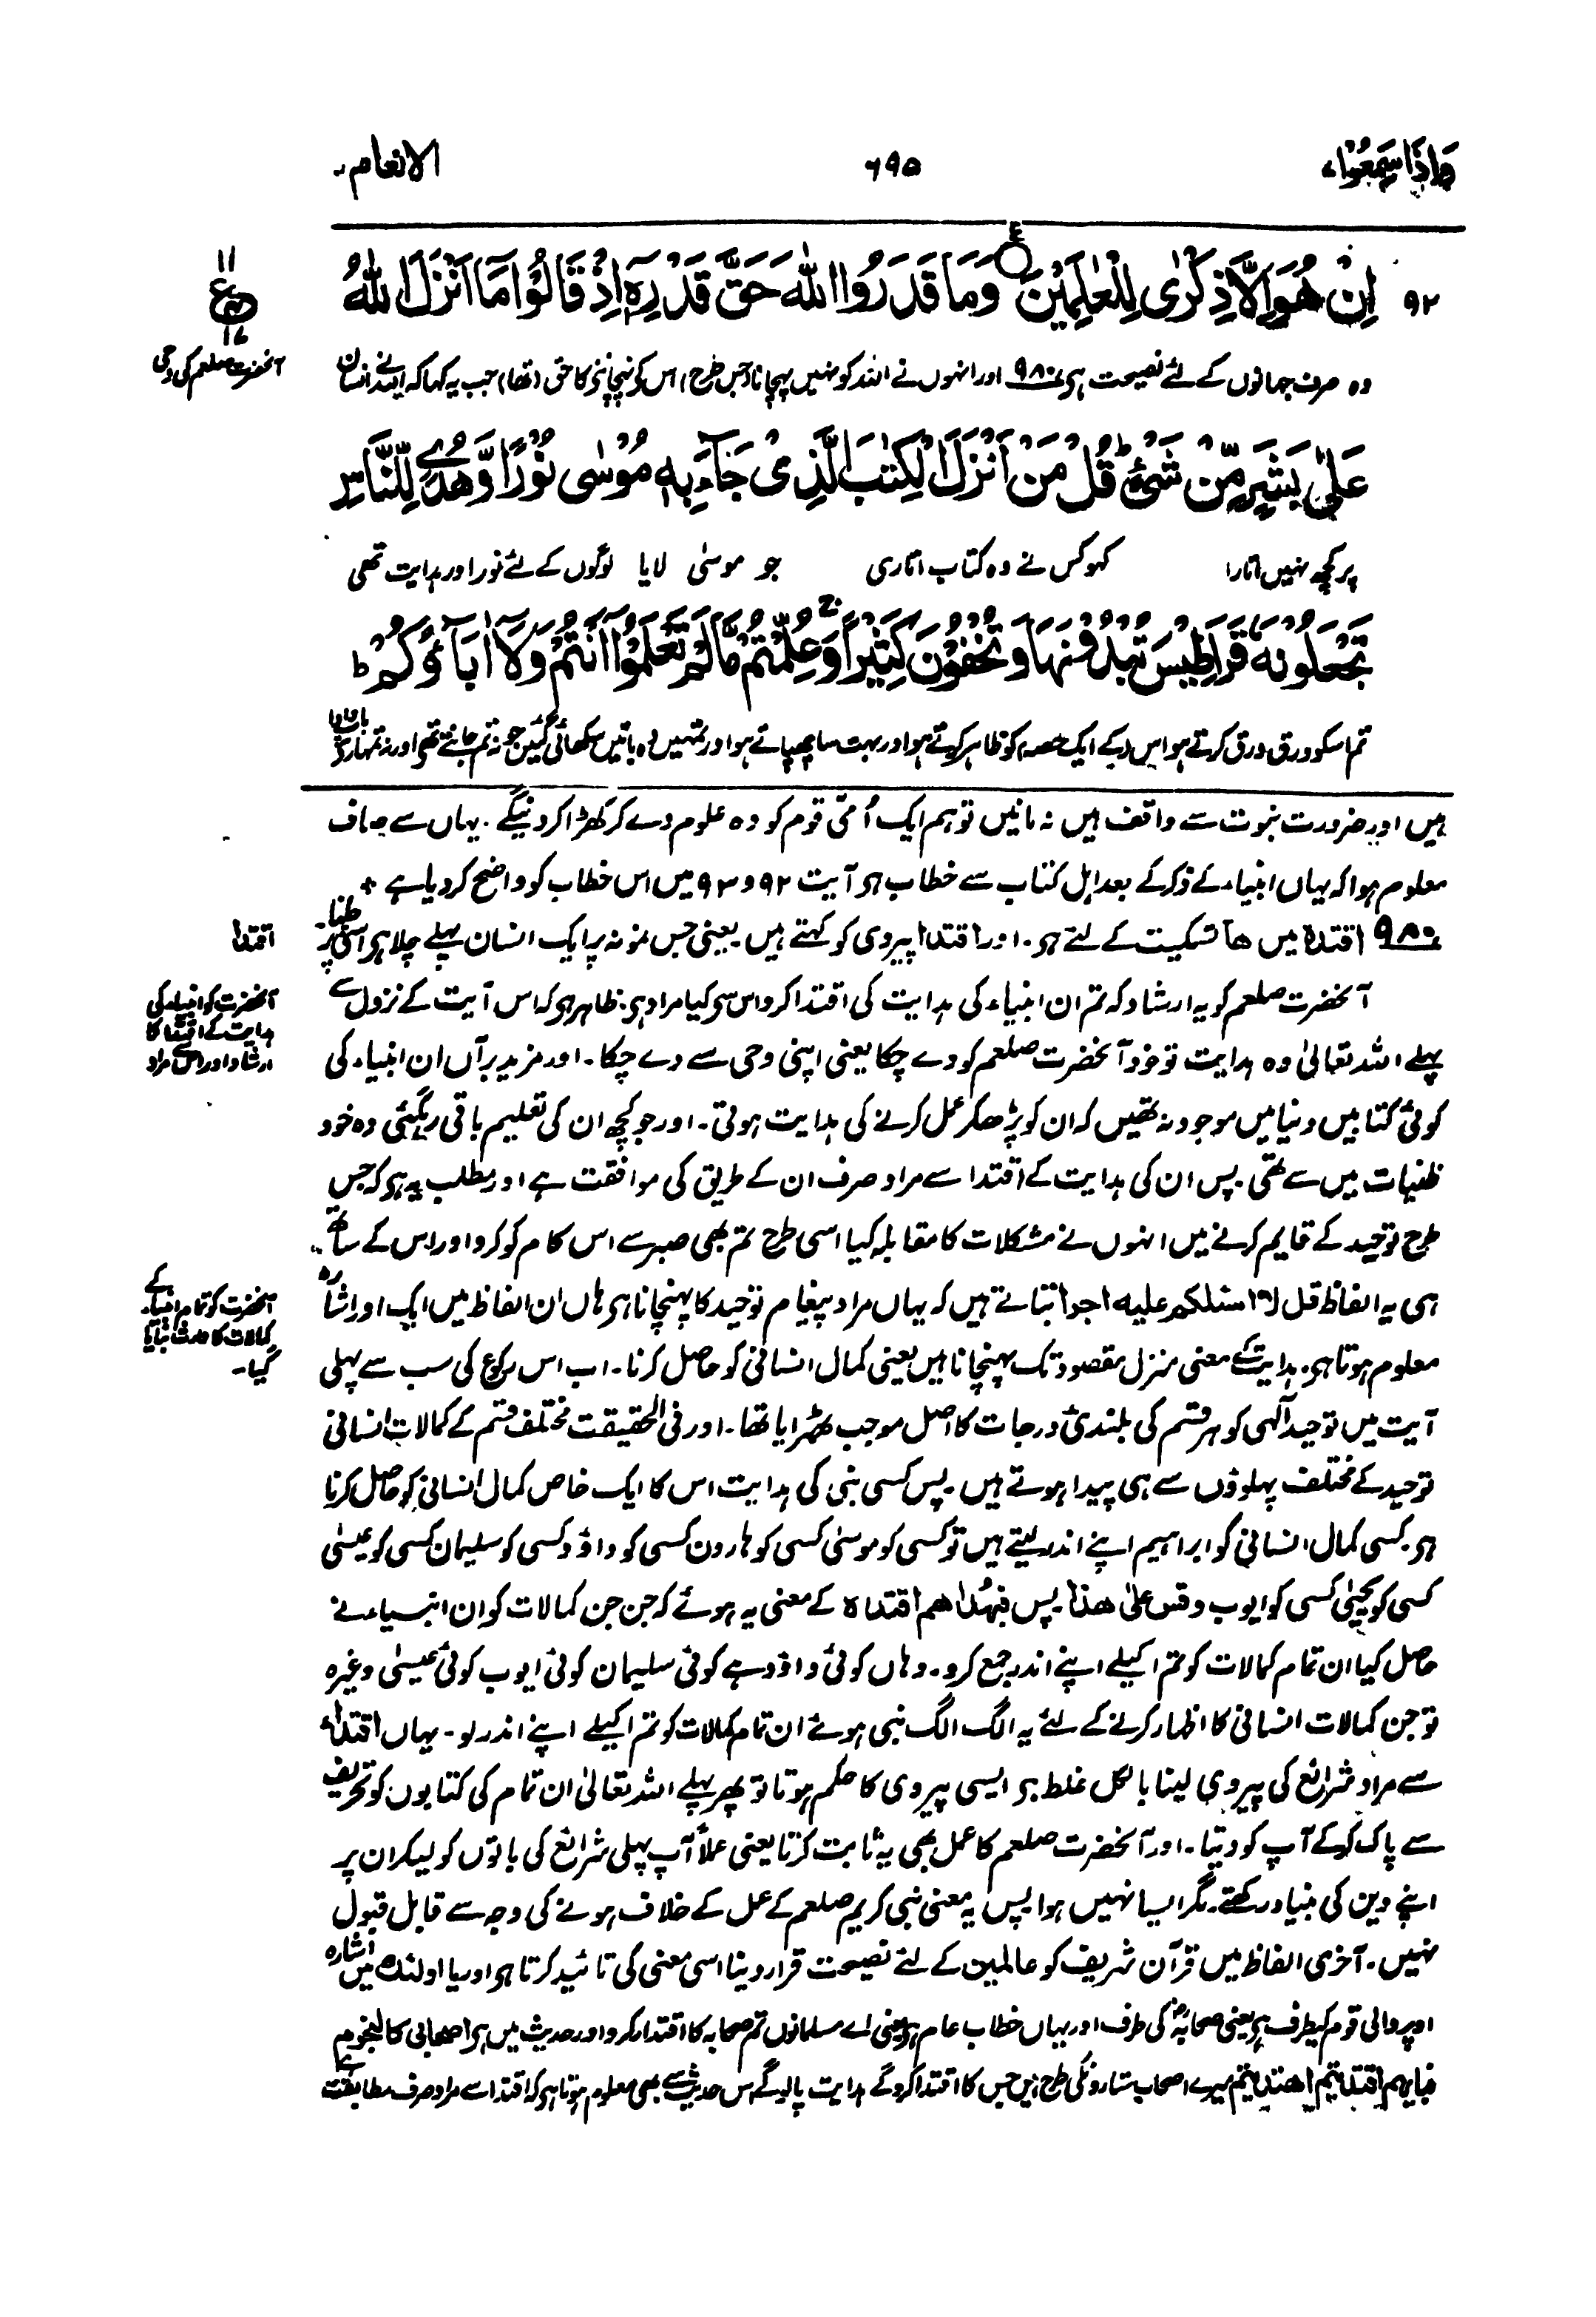 وَاِذَا سَمِعُوْا، ۶۹۵ الانعام۔
۹۲ اِنْ هُوَ اِلَّا ذِكْرٰى لِلْعٰلَمِيْنَ ۝ وَمَا قَدَرُوا اللّٰهَ حَقَّ قَدْرِهٖٓ اِذْ قَالُوْا مَآ اَنْزَلَ اللّٰهُ
۱۱
ع
۱۷
آنحضرت صلعم کی وحی
وہ صرف جہانوں کے لئے نصیحت ہی ۹۸۰ اور انہوں نے اللہ کو نہیں پہچانا (جس طرح) اس کو پہچاننے کا حق (تھا) جب یہ کہا کہ اللہ نے انسان
عَلٰى بَشَرٍ مِّنْ شَىْءٍ ؕ قُلْ مَنْ اَنْزَلَ الْكِتٰبَ الَّذِىْ جَآءَ بِهٖ مُوْسٰى نُوْرًا وَّهُدًى لِّلنَّاسِ
پر کچھ نہیں اتارا کہو کس نے وہ کتاب اتاری جو موسٰی لایا لوگوں کے لئے نور اور ہدایت تھی
تَجْعَلُوْنَهٗ قَرَاطِيْسَ تُبْدُوْنَهَا وَتُخْفُوْنَ كَثِيْرًا ۚ وَعُلِّمْتُمْ مَّا لَمْ تَعْلَمُوْٓا اَنْتُمْ وَلَآ اٰبَآؤُكُمْ ؕ
تم اسکو ورق ورق کرتے ہو اس (کے ایک حصہ) کو ظاہر کرتے ہو اور بہت سا چھپاتے ہو اور تمہیں وہ باتیں سکھائی گئیں جو نہ تم جانتے تھے اور نہ تمہارے باپ دادا
ہیں اور ضرورت نبوت سے واقف ہیں نہ مانیں تو ہم ایک اُمّی قوم کو وہ علوم دے کر کھڑا کر دینگے۔ یہاں سے صاف
معلوم ہوا کہ یہاں انبیاء کے ذکر کے بعد اہل کتاب سے خطاب ہی آیت ۹۲ و ۹۳ میں اس خطاب کو واضح کر دیا ہے +
اقتدا
۹۸۰ اقتدہ میں ھا سکیت کے لئے ہی۔ اور اقتدا پیروی کو کہتے ہیں۔ یعنی جس نمونہ پر ایک انسان پہلے چلا ہی اسی پر چلنا۔
آنحضرت کو انبیاء کی
ہدایت کے اقتدا کا
ارشاد اور اس سے مراد
آنحضرت صلعم کو یہ ارشاد کہ تم ان انبیاء کی ہدایت کی اقتدا کرو اس سی کیا مراد ہی۔ ظاہر ہی کہ اس آیت کے نزول سے
پہلے اللہ تعالیٰ وہ ہدایت تو خود آنحضرت صلعم کو دے چکا یعنی اپنی وحی سے دے چکا۔ اور مزید برآں ان انبیاء کی
کوئی کتابیں دنیا میں موجود نہ تھیں کہ ان کو پڑھکر عمل کرنے کی ہدایت ہوتی۔ اور جو کچھ ان کی تعلیم باقی رہگئی وہ خود
ظنیات میں سے تھی۔ پس ان کی ہدایت کے اقتدا سے مراد صرف ان کے طریق کی موافقت ہے اور مطلب یہ ہی کہ جس
طرح توحید کے قایم کرنے میں انہوں نے مشکلات کا مقابلہ کیا اسی طرح تم بھی صبر سے اس کام کو کرو اور اس کے ساتھ
آنحضرت کو تمام انبیاء کے
کمالات کا وارث بنایا
گیا۔
ہی یہ الفاظ قل لا اسئلکم علیه اجرا بتاتے ہیں کہ یہاں مراد پیغام توحید کا پہنچانا ہی ہاں ان الفاظ میں ایک اور اشارہ
معلوم ہوتا ہی۔ ہدایت کے معنی منزل مقصود تک پہنچانا ہیں یعنی کمال انسانی کو حاصل کرنا۔ اب اس رکوع کی سب سے پہلی
آیت میں توحید آلہی کو ہر قسم کی بلندیٔ درجات کا اصل موجب ٹھہرایا تھا۔ اور فی الحقیقت مختلف قسم کے کمالات انسانی
توحید کے مختلف پہلوؤں سے ہی پیدا ہوتے ہیں۔ پس کسی نبی کی ہدایت اس کا ایک خاص کمال انسانی کو حاصل کرنا
ہی۔ کسی کمال انسانی کو ابراہیم اپنے اندر لیتے ہیں تو کسی کو موسیٰ کسی کو ہارون کسی کو داؤد کسی کو سلیمان کسی کو عیسیٰ
کسی کو یحییٰ کسی کو ایوب وقس علیٰ ھذا۔ پس فبھدا ھم اقتدہ کے معنی یہ ہوئے کہ جن جن کمالات کو ان انبیاء نے
حاصل کیا ان تمام کمالات کو تم اکیلے اپنے اندر جمع کرو۔ وہاں کوئی داؤد ہے کوئی سلیمان کوئی ایوب کوئی عیسیٰ وغیرہ
تو جن کمالات انسانی کا اظہار کرنے کے لئے یہ الگ الگ نبی ہوئے ان تمام کمالات کو تم اکیلے اپنے اندر لو۔ یہاں اقتداء
سے مراد شرائع کی پیروی لینا بالکل غلط ہی ایسی پیروی کا حکم ہوتا تو پھر پہلے اللہ تعالیٰ ان تمام کی کتابوں کو تحریف
سے پاک کرکے آپ کو دیتا۔ اور آنحضرت صلعم کا عمل بھی یہ ثابت کرتا یعنی عملاً آپ پہلی شرائع کی باتوں کو لیکر ان پر
اپنے دین کی بنیاد رکھتے۔ مگر ایسا نہیں ہوا پس یہ معنی نبی کریم صلعم کے عمل کے خلاف ہونے کی وجہ سے قابل قبول
نہیں۔ آخری الفاظ میں قرآن شریف کو عالمین کے لئے نصیحت قرار دینا اسی معنی کی تائید کرتا ہی اور یا اولئک میں اشارہ
اوپر والی قوم کیطرف ہی یعنی صحابہؓ کی طرف اور یہاں خطاب عام ہی یعنی اے مسلمانوں تم صحابہ کا اقتدا کرو اور حدیث میں ہی اصحابی کالنجوم
فبایہم اقتدیتم اھتدیتم میرے اصحاب ستارونکی طرح ہیں جس کا اقتدا کروگے ہدایت پا لوگے اس حدیث سے بھی معلوم ہوتا ہی کہ اقتدا سے مراد صرف مطابقت